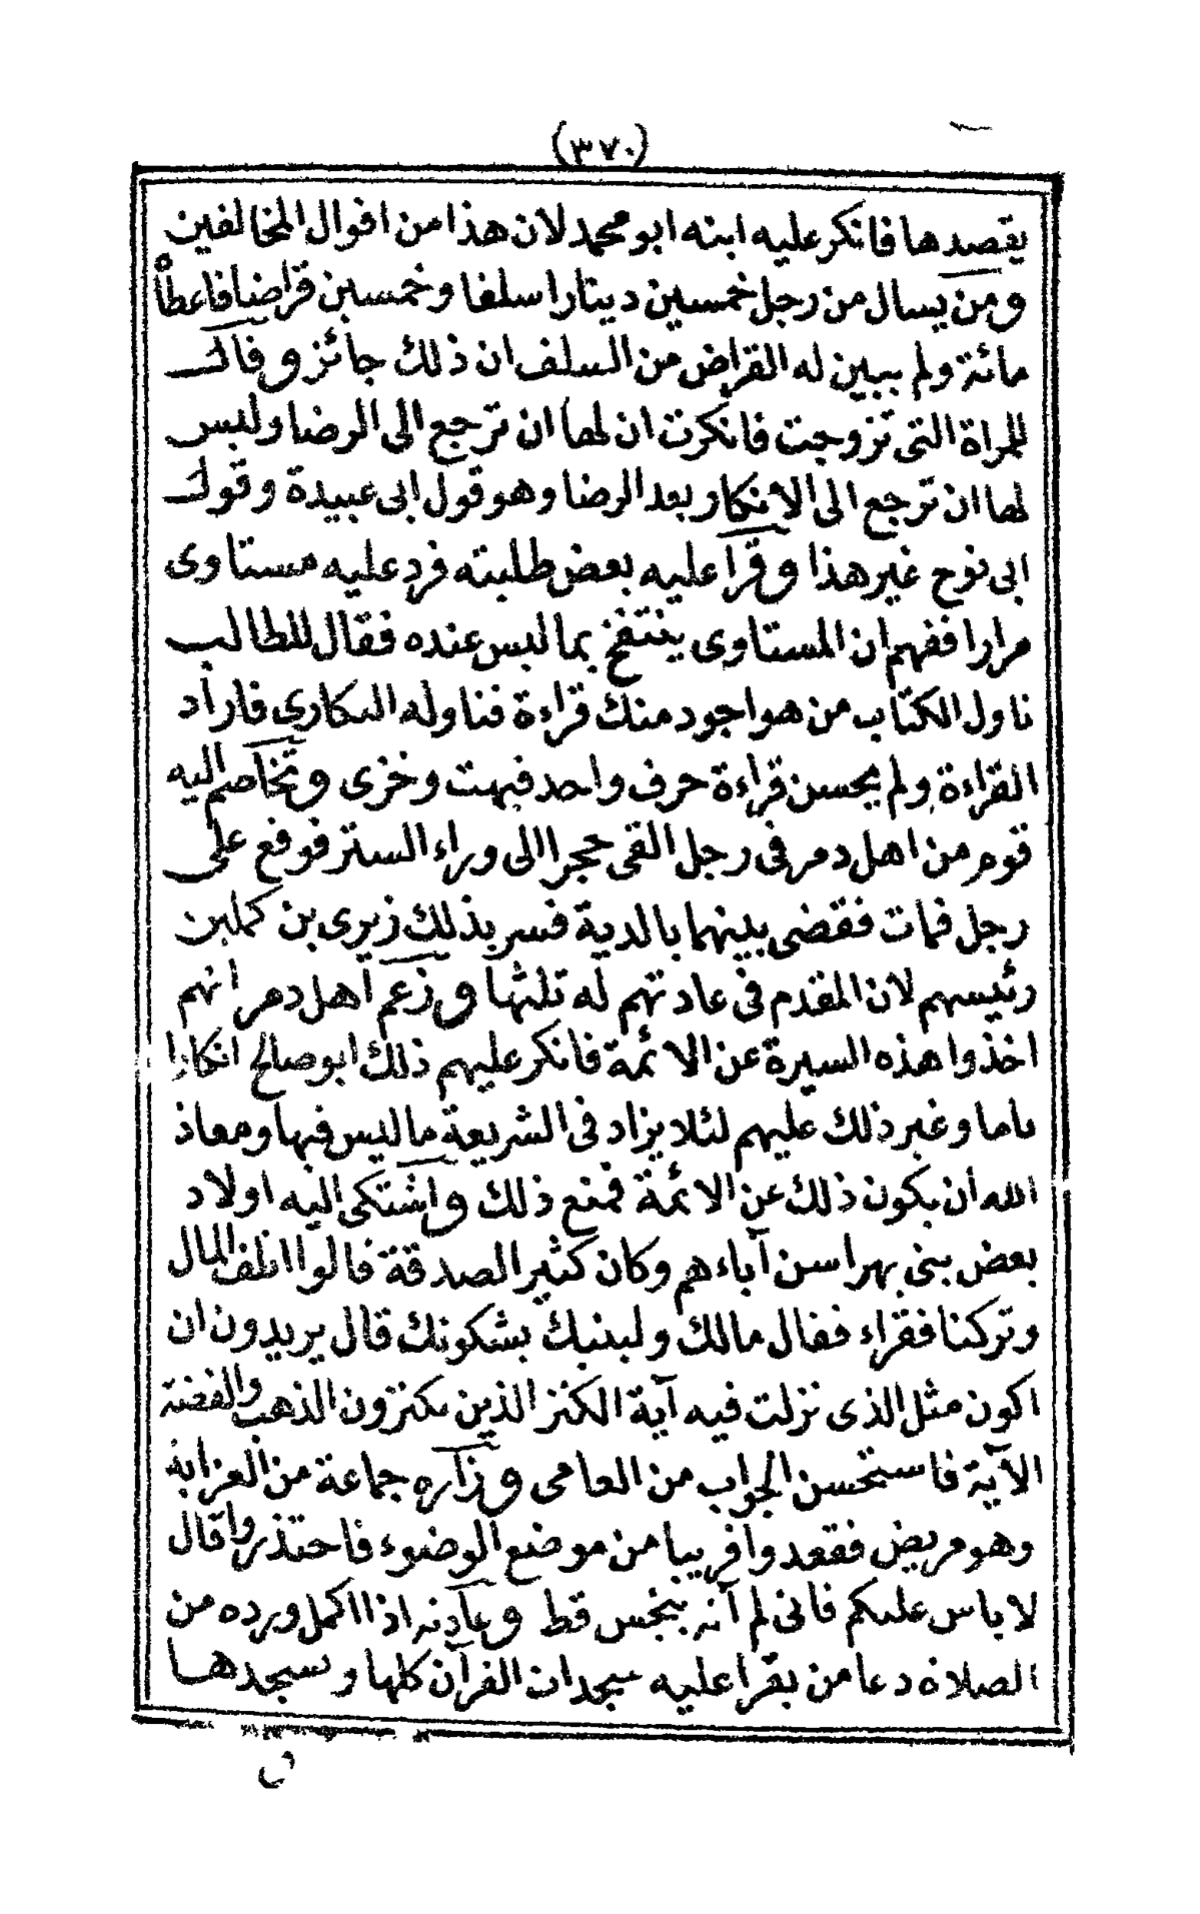 (٣٧٠)
يقصدها فانكر عليه ابنه ابو محمد لان هذا من اقوال المخالفين
ومن يسال من رجل خمسين دينارا سلفا وخمسين قراضا فاعطاه
مائة ولم يبين له القراض من السلف ان ذلك جائز وقال
للمراة التى تزوجت فانكرت ان لها ان ترجع الى الرضا وليس
لها ان ترجع الى الانكار بعد الرضا وهو قول ابى عبيدة وقول
ابى نوح غير هذا وقرأ عليه بعض طلبته فرد عليه مستاوى
مرارا ففهم ان المستاوى ينتفخ بما ليس عنده فقال للطالب
ناول الكتاب من هو اجود منك قراءة فناوله البكارى فاراد
القراءة ولم يحسن قراءة حرف واحد فبهت وخزى وتخاصم اليه
قوم من اهل دمر فى رجل القى حجرا الى وراء الستر فوقع على
رجل فمات فقضى بينهما بالدية فسر بذلك زيرى بن كملين
رئيسهم لان المقدم فى عادتهم له ثلثها وزعم اهل دمر انهم
اخذوا هذه السيرة عن الائمة فانكر عليهم ذلك ابو صالح انكارا
تاما وغير ذلك عليهم لئلا يزاد فى الشريعة ما ليس فيها ومعاذ
الله أن يكون ذلك عن الائمة فمنع ذلك واشتكى اليه اولاد
بعض بنى يهراسن آباءهم وكان كثير الصدقة قالوا اتلف المال
وتركنا فقراء فقال مالك ولبنيك يشكونك قال يريدون ان
اكون مثل الذى نزلت فيه آية الكنز الذين يكنزون الذهب والفضة
الآية فاستحسن الجواب من العامى وزاره جماعة من العزابة
وهو مريض فقعدوا قريبا من موضع الوضوء فاحتذروا قال
لا باس عليكم فانى لم آته بنجس قط وعادته اذا اكمل ورده من
الصلاة دعا من يقرا عليه سجدات القرآن كلها ويسجدها